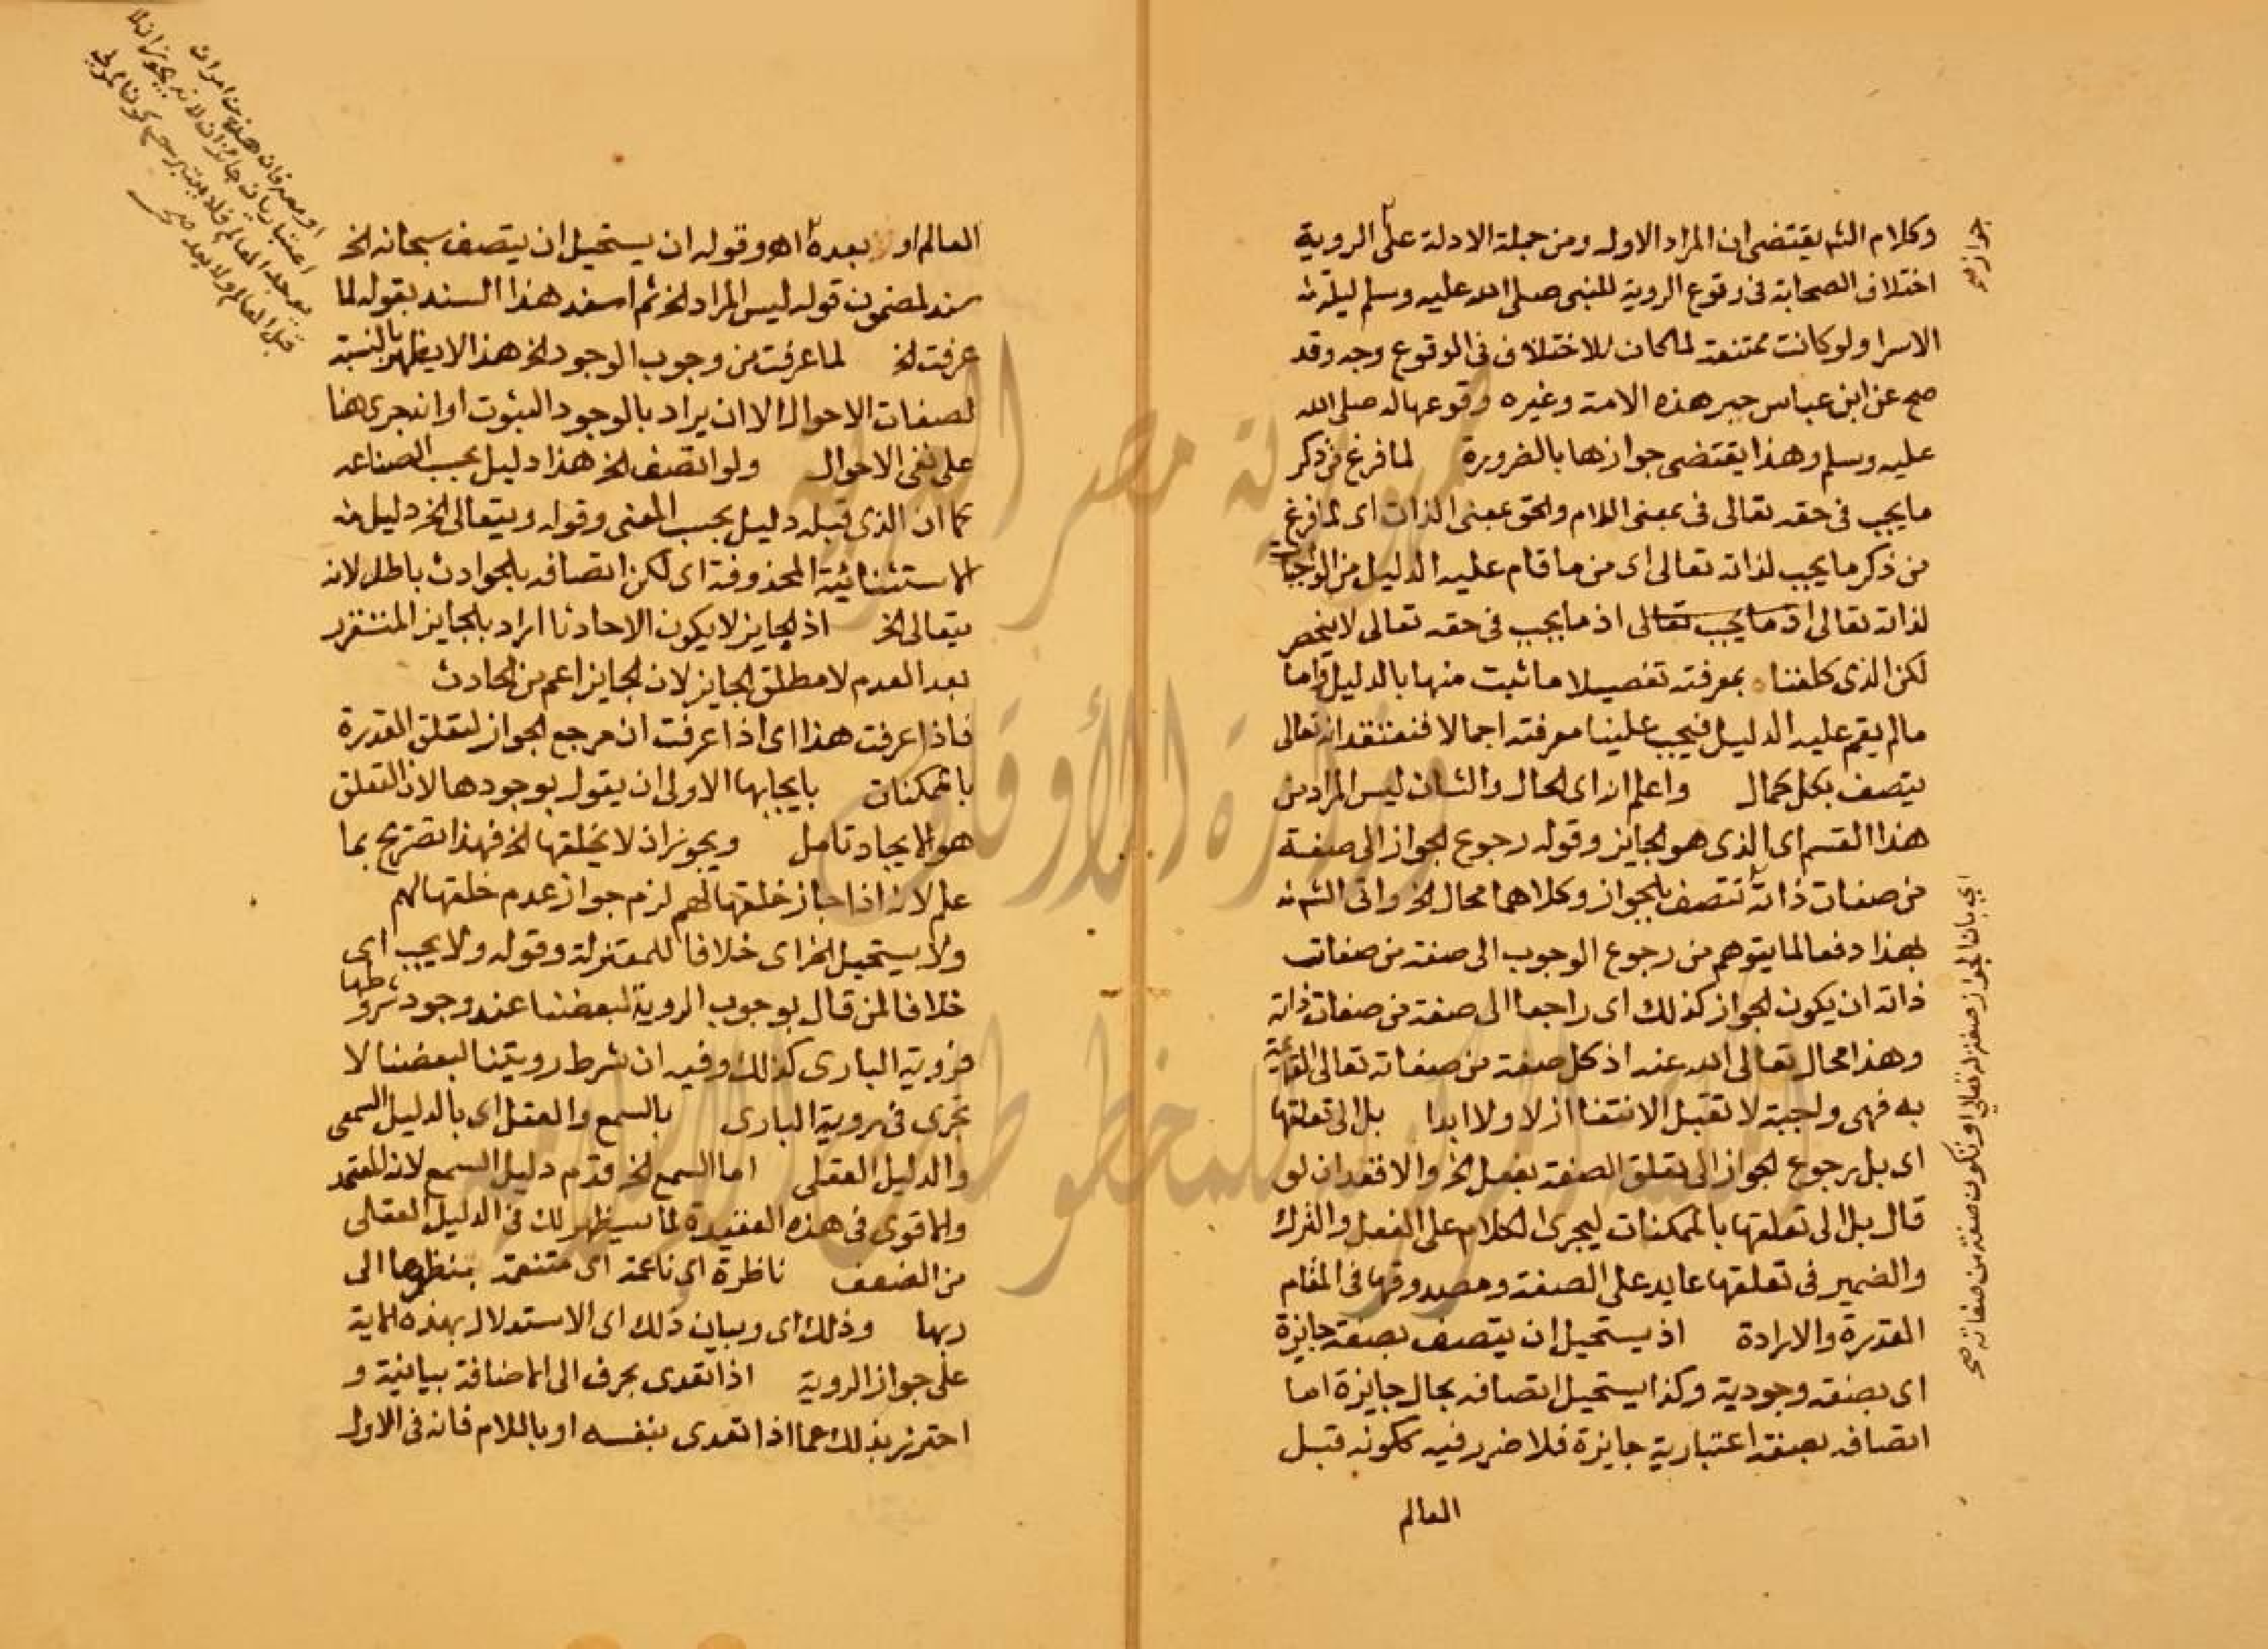 وكلام الشم يقتضى ان المراد الاول ومن جملة الادلة على الروية
جواز صح
اختلاف الصحابة فى وقوع الروية للنبى صلى الله عليه وسلم ليلة
الاسرا ولو كانت ممتنعة لما كان للاختلاف فى الوقوع وجه وقد
صح عن ابن عباس حبر هذه الامة وغيره وقوعها له صلى الله
عليه وسلم وهذا يقتضى جوازها بالضرورة لما فرغ من ذكر
ما يجب فى حقه تعالى فى بمعنى اللام والحق بمعنى الذات اى لما فرغ
من ذكر ما يجب لذاته تعالى اى من ما قام عليه الدليل من الواجبات
لذاته تعالى اذ ما يجب تعالى اذ ما يجب فى حقه تعالى لا ينحصر
لكن الذى كلفنا بمعرفته تفصيلا ما ثبت منها بالدليل واما
ما لم يقم عليه الدليل فيجب علينا معرفته اجمالا فنعتقد انه تعالى
يتصف بكل كمال واعلم انه اى الحال والشان ليس المراد من
هذا القسم اى الذى هو الجايز وقوله رجوع الجواز الى صفة
من صفات ذاته تتصف بالجواز وكلاهما محال الخ واتى الشم
بهذا دفعا لما يتوهم من رجوع الوجوب الى صفة من صفات
ذاته ان يكون الجواز كذلك اى راجعا الى صفة من صفات ذاته
وهذا محال تعالى الله عنه اذ كل صفة من صفاته تعالى القائمة
به فهى واجبة لا تقبل الانتفا ازلا ولا ابدا بل الى تعلقها
اى بل يرجوع الجواز الى تعلق الصفة بفعل الخ والاقعد ان لو
قال بل الى تعلقها بالممكنات ليجرى الكلام على الفعل والترك
والضمير فى تعلقها عايد على الصفة ومصدوقها فى المقام
القدرة والارادة اذ يستحيل ان يتصف بصفة جايزة
اى بصفة وجودية وكذا يستحيل اتصافه بحال جايزة اما
اتصافه بصفة اعتبارية جايزة فلا ضرر فيه ككونه قبل
العالم
بان الجواز صفة له تعالى او تكون صفة من صفاته صح
العالم او بعده اهـ وقوله ان يستحيل ان يتصف سبحانه الخ
سند لمضمون قوله ليس المراد الخ ثم اسند هذا السند بقوله لما
عرفت الخ لما عرفت من وجوب الوجود الخ هذا لا يظهر بالنسبة
لصفات الاحوال الا ان يراد بالوجود الثبوت او انه جرى هنا
على نفى الاحوال ولو اتصف الخ هذا دليل بحسب الصناعه
كما ان الذى قبله دليل بحسب المعنى وقوله ويتعالى الخ دليل
الاستثنائية المحذوفة اى لكن اتصافه بالحوادث باطل لانه
يتعالى الخ اذ الجايز لا يكون الا حادثا اراد بالجايز المتقرر
بعد العدم لا مطلق الجايز لان الجايز اعم من الحادث
فاذا عرفت هذا اى اذا عرفت ان مرجع الجواز لتعلق القدرة
بالممكنات بايجابها الاولى ان يقول بوجودها لان التعلق
هو الايجاد تامل ويجوز ان لا يخلقها الخ فهذا تصريح بما
علم لانه اذا جاز خلقها لهم لزم جواز عدم خلقها لهم
ولا يستحيل الخ اى خلافا للمعتزلة وقوله ولا يجب اى
خلافا لمن قال بوجوب الروية لبعضنا عند وجود شروطها
فروية البارى كذلك وفيه ان شرط رويتنا لبعضنا لا
تجرى فى روية البارى بالسمع والعقل اى بالدليل السمعى
والدليل العقلى اما السمع الخ وقدم دليل السمع لانه المعتمد
والاقوى فى هذه العقيدة لما سيظهر لك فى الدليل العقلى
من الضعف ناظرة اى ناعمة اى متنعمة بنظرها الى
ربها وذلك اى وبيان ذلك اى الاستدلال بهذه الاية
على جواز الروية اذا تعدى بحرف الى الاضافة بيانية و
احترز بذلك عما اذا تعدى بنفسه او باللام فانه فى الاول